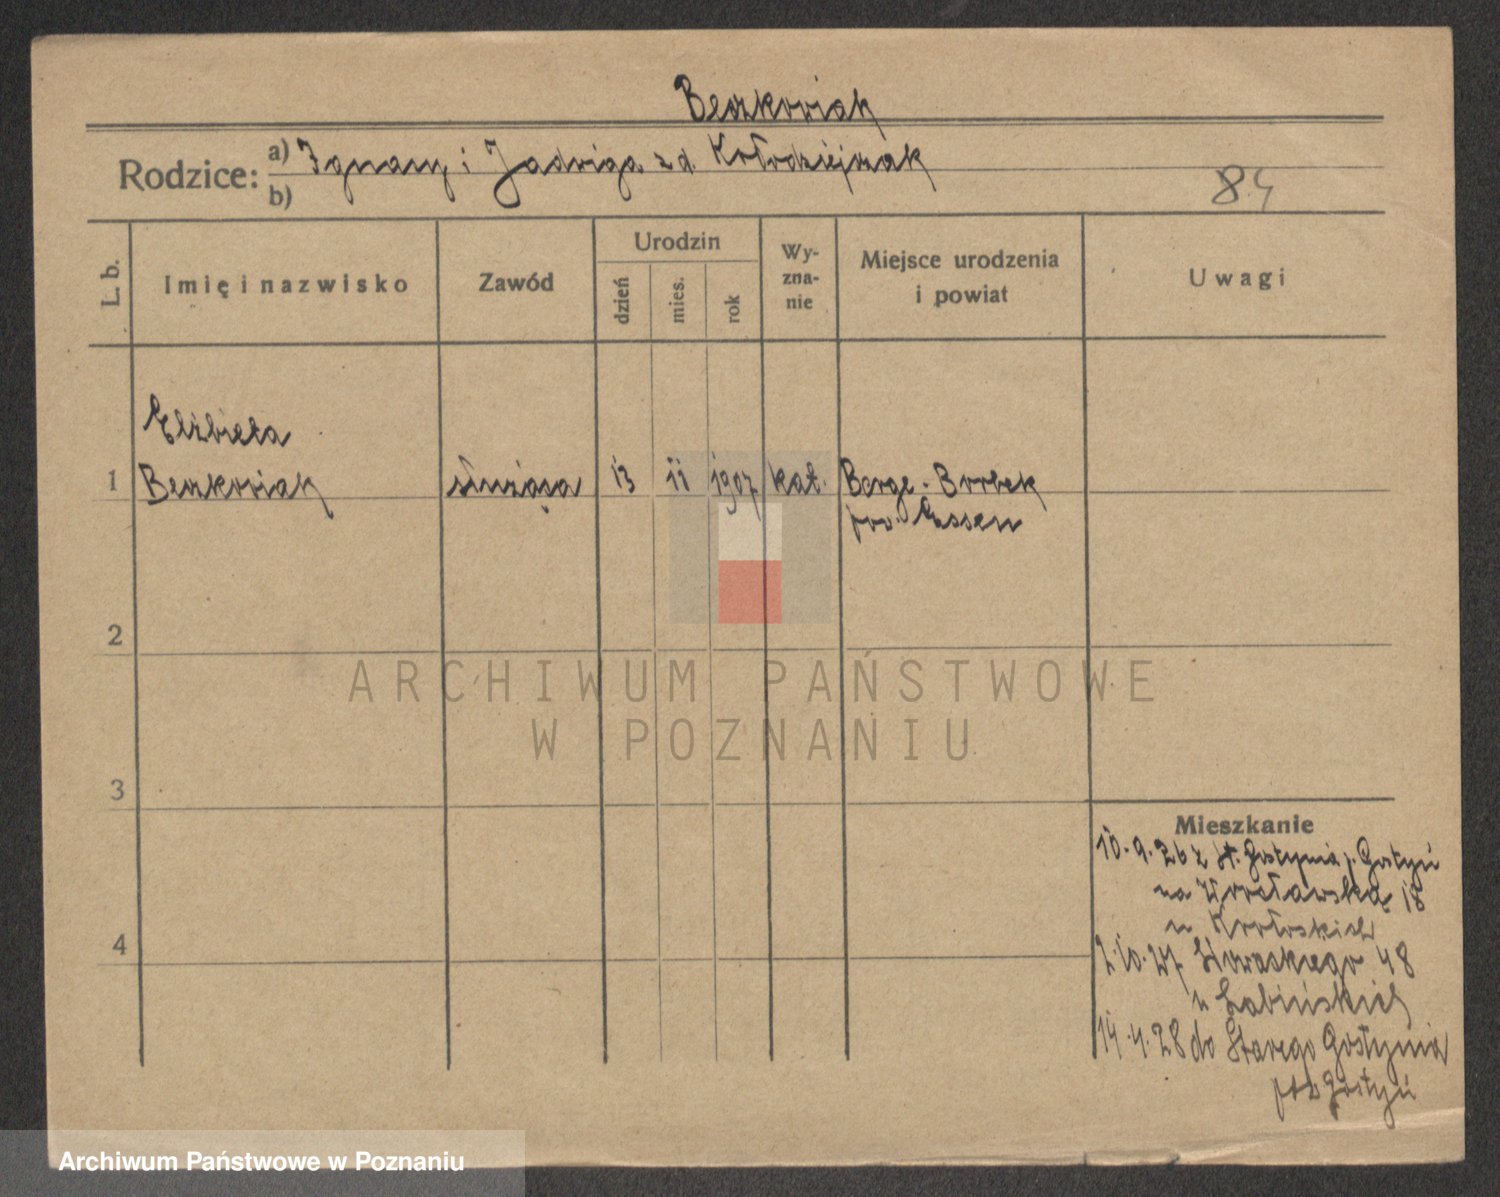 Beszkowiak
Rodzice: a) Ignacy i Jadwiga z d. Kołodziejczak
b)
84
L. b.
Imię i nazwisko
Zawód
Urodzin
dzień
mies.
rok
Wy-
zna-
nie
Miejsce urodzenia
i powiat
Uwagi
Elżbieta
1 Beszkowiak służąca 13 11 1907 kat. Berge-Borbek
pow. Essen
2
ARCHIWUM PAŃSTWOWE
W POZNANIU
3
Mieszkanie
10.9.26 z St. Gostynia p. Gostyń
na Wrocławską 18
4
u
2.10.27 Słowackiego 48
u Łabińskich
14.4.28 do Starego Gostynia
pow Gostyń
Archiwum Państwowe w Poznaniu